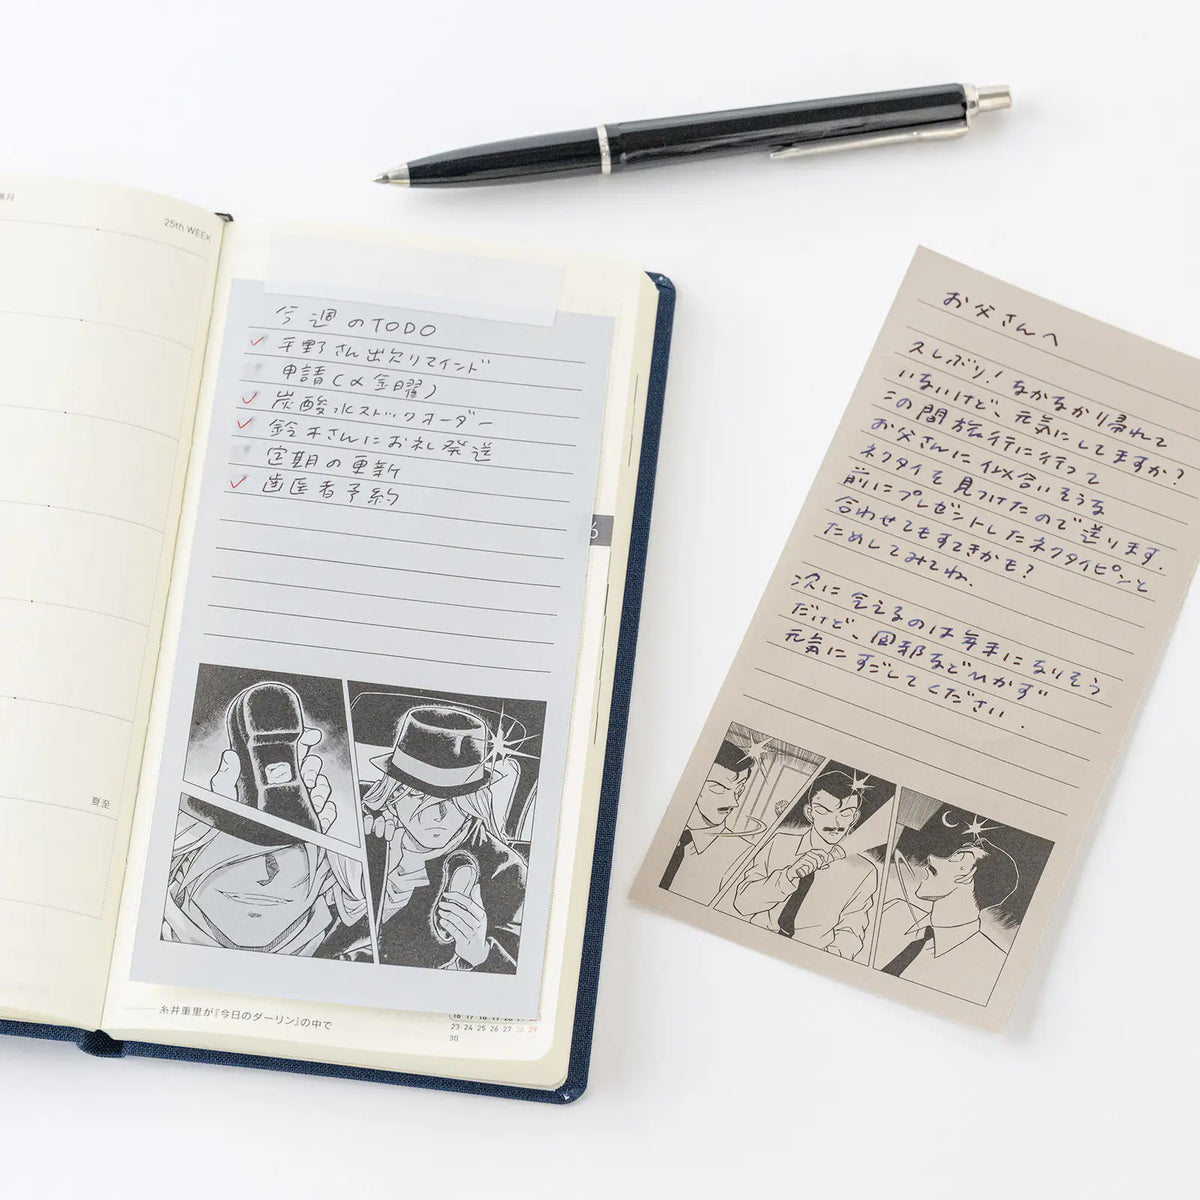 25th WEEK
夏至
今週のTODO
平野さん出欠リマインド
申請(〆金曜)
炭酸水ストックオーダー
鈴木さんにお礼発送
定期の更新
歯医者予約
6
糸井重里が『今日のダーリン』の中で
23 24 25 26 27 28 29
30
お父さんへ
久しぶり!なかなか帰れて
いないけど、元気にしてますか?
この間旅行に行って
お父さんに似合いそうな
ネクタイを見つけたので送ります.
前にプレゼントしたネクタイピンと
合わせてもすてきかも?
ためしてみてね.
次に会えるのは年末になりそう
だけど、風邪などひかず
元気にすごしてください.